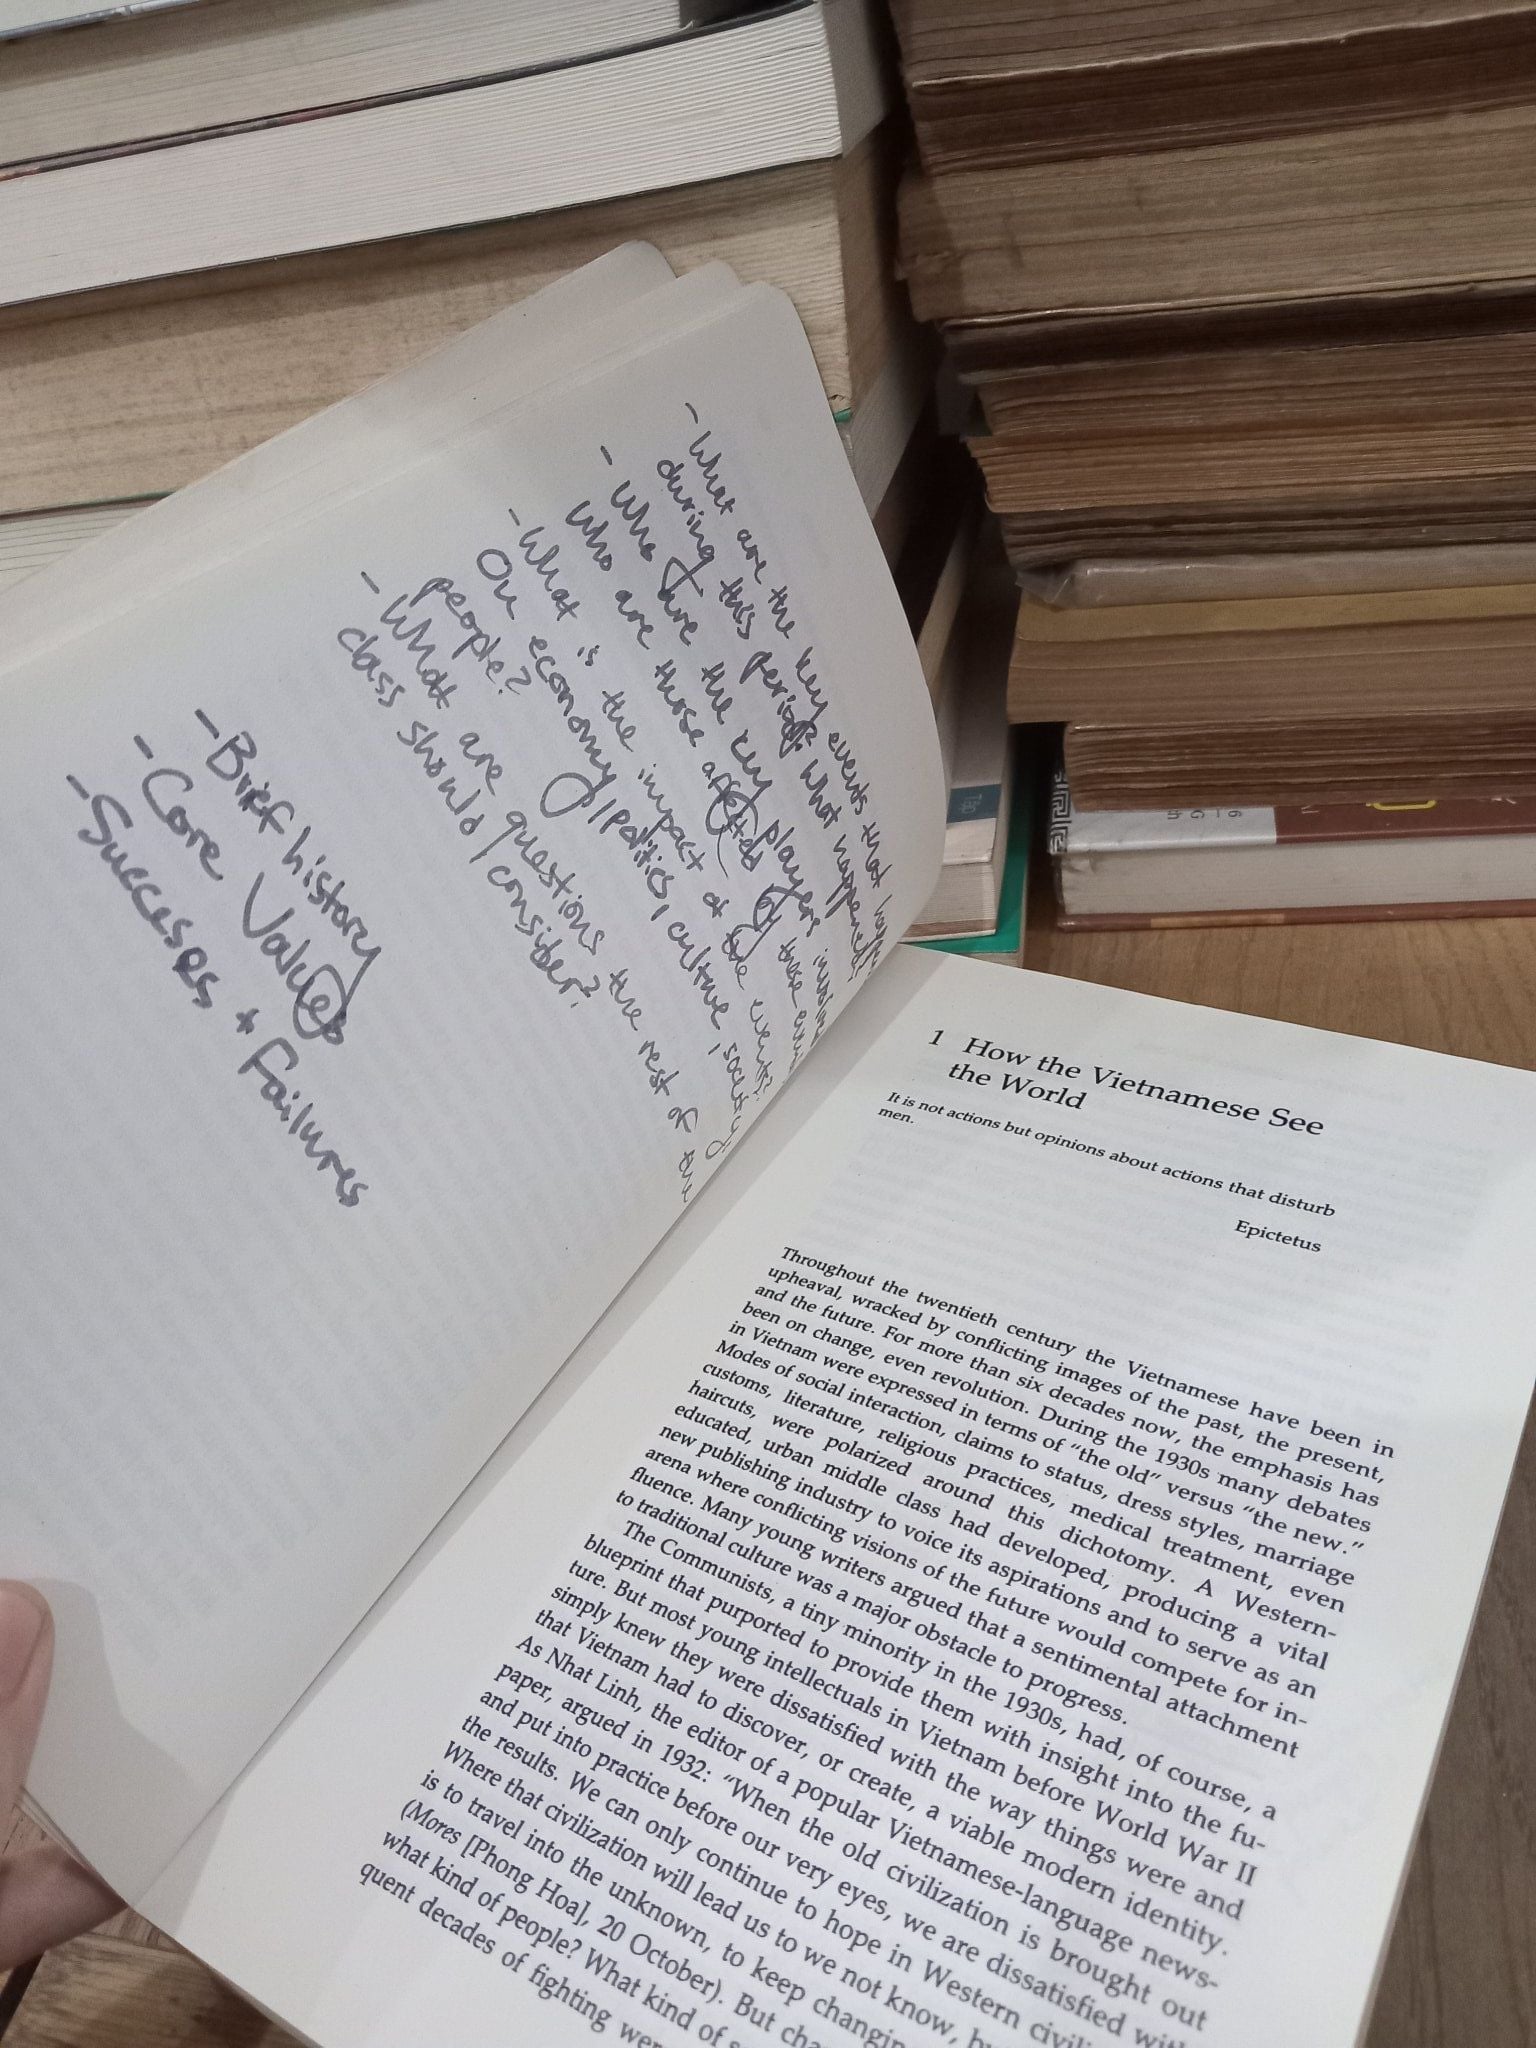 - What are the key events that
during this period? What happened?
- Who are the key players
Who are those affected by these
- What is the impact of the events?
On economy/Politics, culture, society,
people?
- What are questions the rest of the
class should consider?
- Brief history
- Core Values
- Successes + Failures
1 How the Vietnamese See
the World
It is not actions but opinions about actions that disturb
men.
Epictetus
Throughout the twentieth century the Vietnamese have been in
upheaval, wracked by conflicting images of the past, the present,
and the future. For more than six decades now, the emphasis has
been on change, even revolution. During the 1930s many debates
in Vietnam were expressed in terms of "the old" versus "the new."
Modes of social interaction, claims to status, dress styles, marriage
customs, literature, religious practices, medical treatment, even
haircuts, were polarized around this dichotomy. A Western-
educated, urban middle class had developed, producing a vital
new publishing industry to voice its aspirations and to serve as an
arena where conflicting visions of the future would compete for in-
fluence. Many young writers argued that a sentimental attachment
to traditional culture was a major obstacle to progress.
The Communists, a tiny minority in the 1930s, had, of course, a
blueprint that purported to provide them with insight into the fu-
ture. But most young intellectuals in Vietnam before World War II
simply knew they were dissatisfied with the way things were and
that Vietnam had to discover, or create, a viable modern identity.
As Nhat Linh, the editor of a popular Vietnamese-language news-
paper, argued in 1932: "When the old civilization is brought out
and put into practice before our very eyes, we are dissatisfied with
the results. We can only continue to hope in Western
Where that civilization will lead us to we not know,
is to travel into the unknown, to keep
(Mores [Phong Hoa], 20 October). But
what kind of people? What kind of
quent decades of fighting